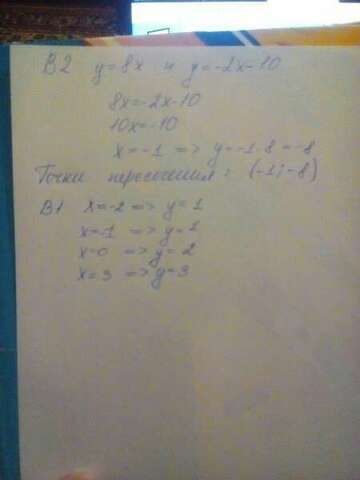 В2 y=8x и y=-2x-10
8x=-2x-10
10x=-10
x=-1 => y=-1·8=-8
Точки пересечения: (-1;-8)
В1 x=-2 => y=1
x=-1 => y=1
x=0 => y=2
x=3 => y=3